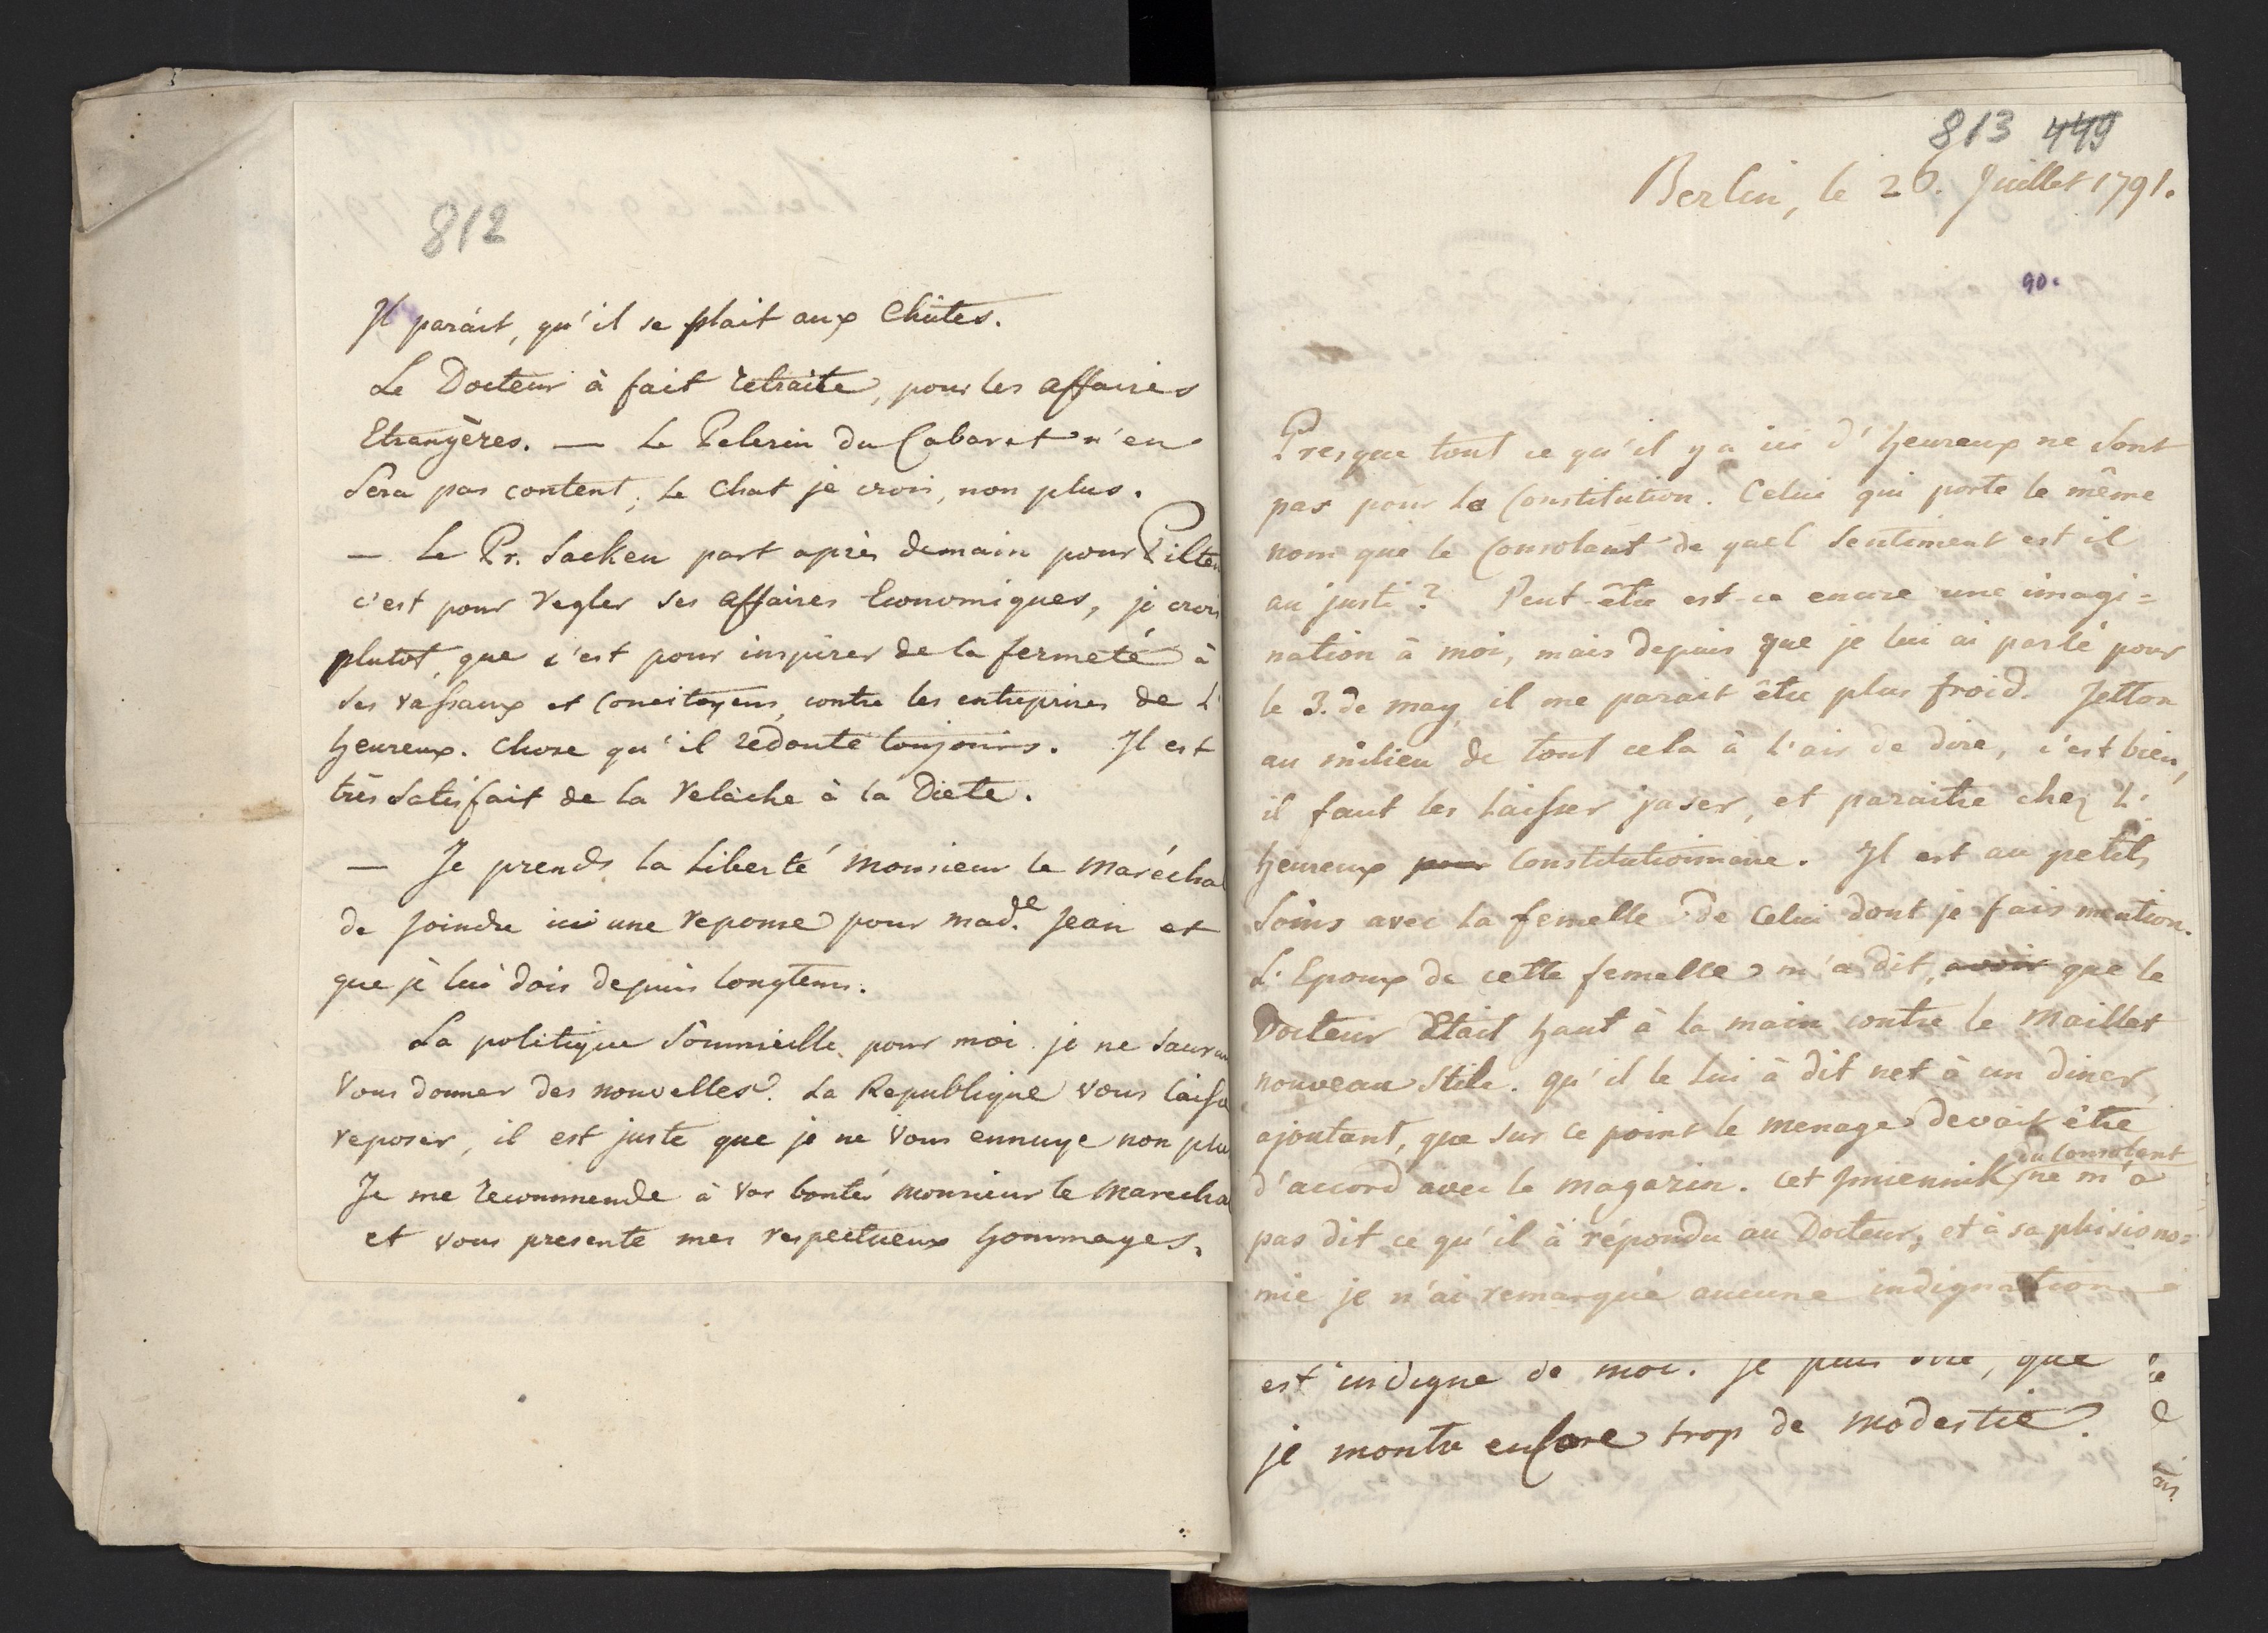 812
Jl paráit, qu'il se plait aux Chûtes.
Le Docteur à fait retraite, pour les affaires
Etrangères. — Le Pelerin du Cabaret n'en
Sera pas content; Le Chat je crois, non plus.
— Le Pr. Sacken part après demain pour Pilten
c'est pour regler ses affaires Economiques, je crois
plutot, que c'est pour inspirer de la fermeté à
ses vassaux et Concitoyens, contre les entreprises de L'
heureux. Chose qu'il redoute toujours. Jl est
très satisfait de la relâche à la Diete.
— Je prends la Liberté Monsieur le Marécha
de joindre ici une reponse pour Mad.e Jean et
que je lui dois depuis longtems.
La politique Sommeille, pour moi je ne saura
Vous donner des nouvelles. La Republique vous laisse
reposer, il est juste que je ne Vous ennuye non plu
Je me recommende à Vos bontés Monsieur le Marecha
et vous presente mes respectueux hommages.
813 449
Berlin, le 26. Juillet 1791.
90.
Presque tout ce qu'il y a ici d'heureux ne sont
pas pour la Constitution. Celui qui porte le même
nom que le Consolant de quel Sentiment est il
au juste? Peut-être est-ce encore une imagi=
nation à moi, mais depuis que je lui ai parlé pour
le 3. de may, il me parait être plus froid. Jetton
au milieu de tout cela à l'air de dire, c'est bien,
il faut les laisser jaser, et paraitre chez L'
heureux pour Constitutionnaire. Jl est au petits
Soins avec la femelle de Celui dont je fais mention.
L'Epoux de cette femelle m'a dit, avoir que le
Docteur Etait haut à la main contre le Maillet
nouveau Stile. qu'il le lui à dit net à un diner,
ajoutant, que sur ce point le menage devait être
d'accord avec le magazin. Cet Jmiennik du Consolant ne m'a
pas dit ce qu'il à répondu au Docteur, et à sa phisiono=
mie je n'ai remarqué aucune indignation
est indigne de moi. Je puis dire, que
je montre encore trop de modestie.